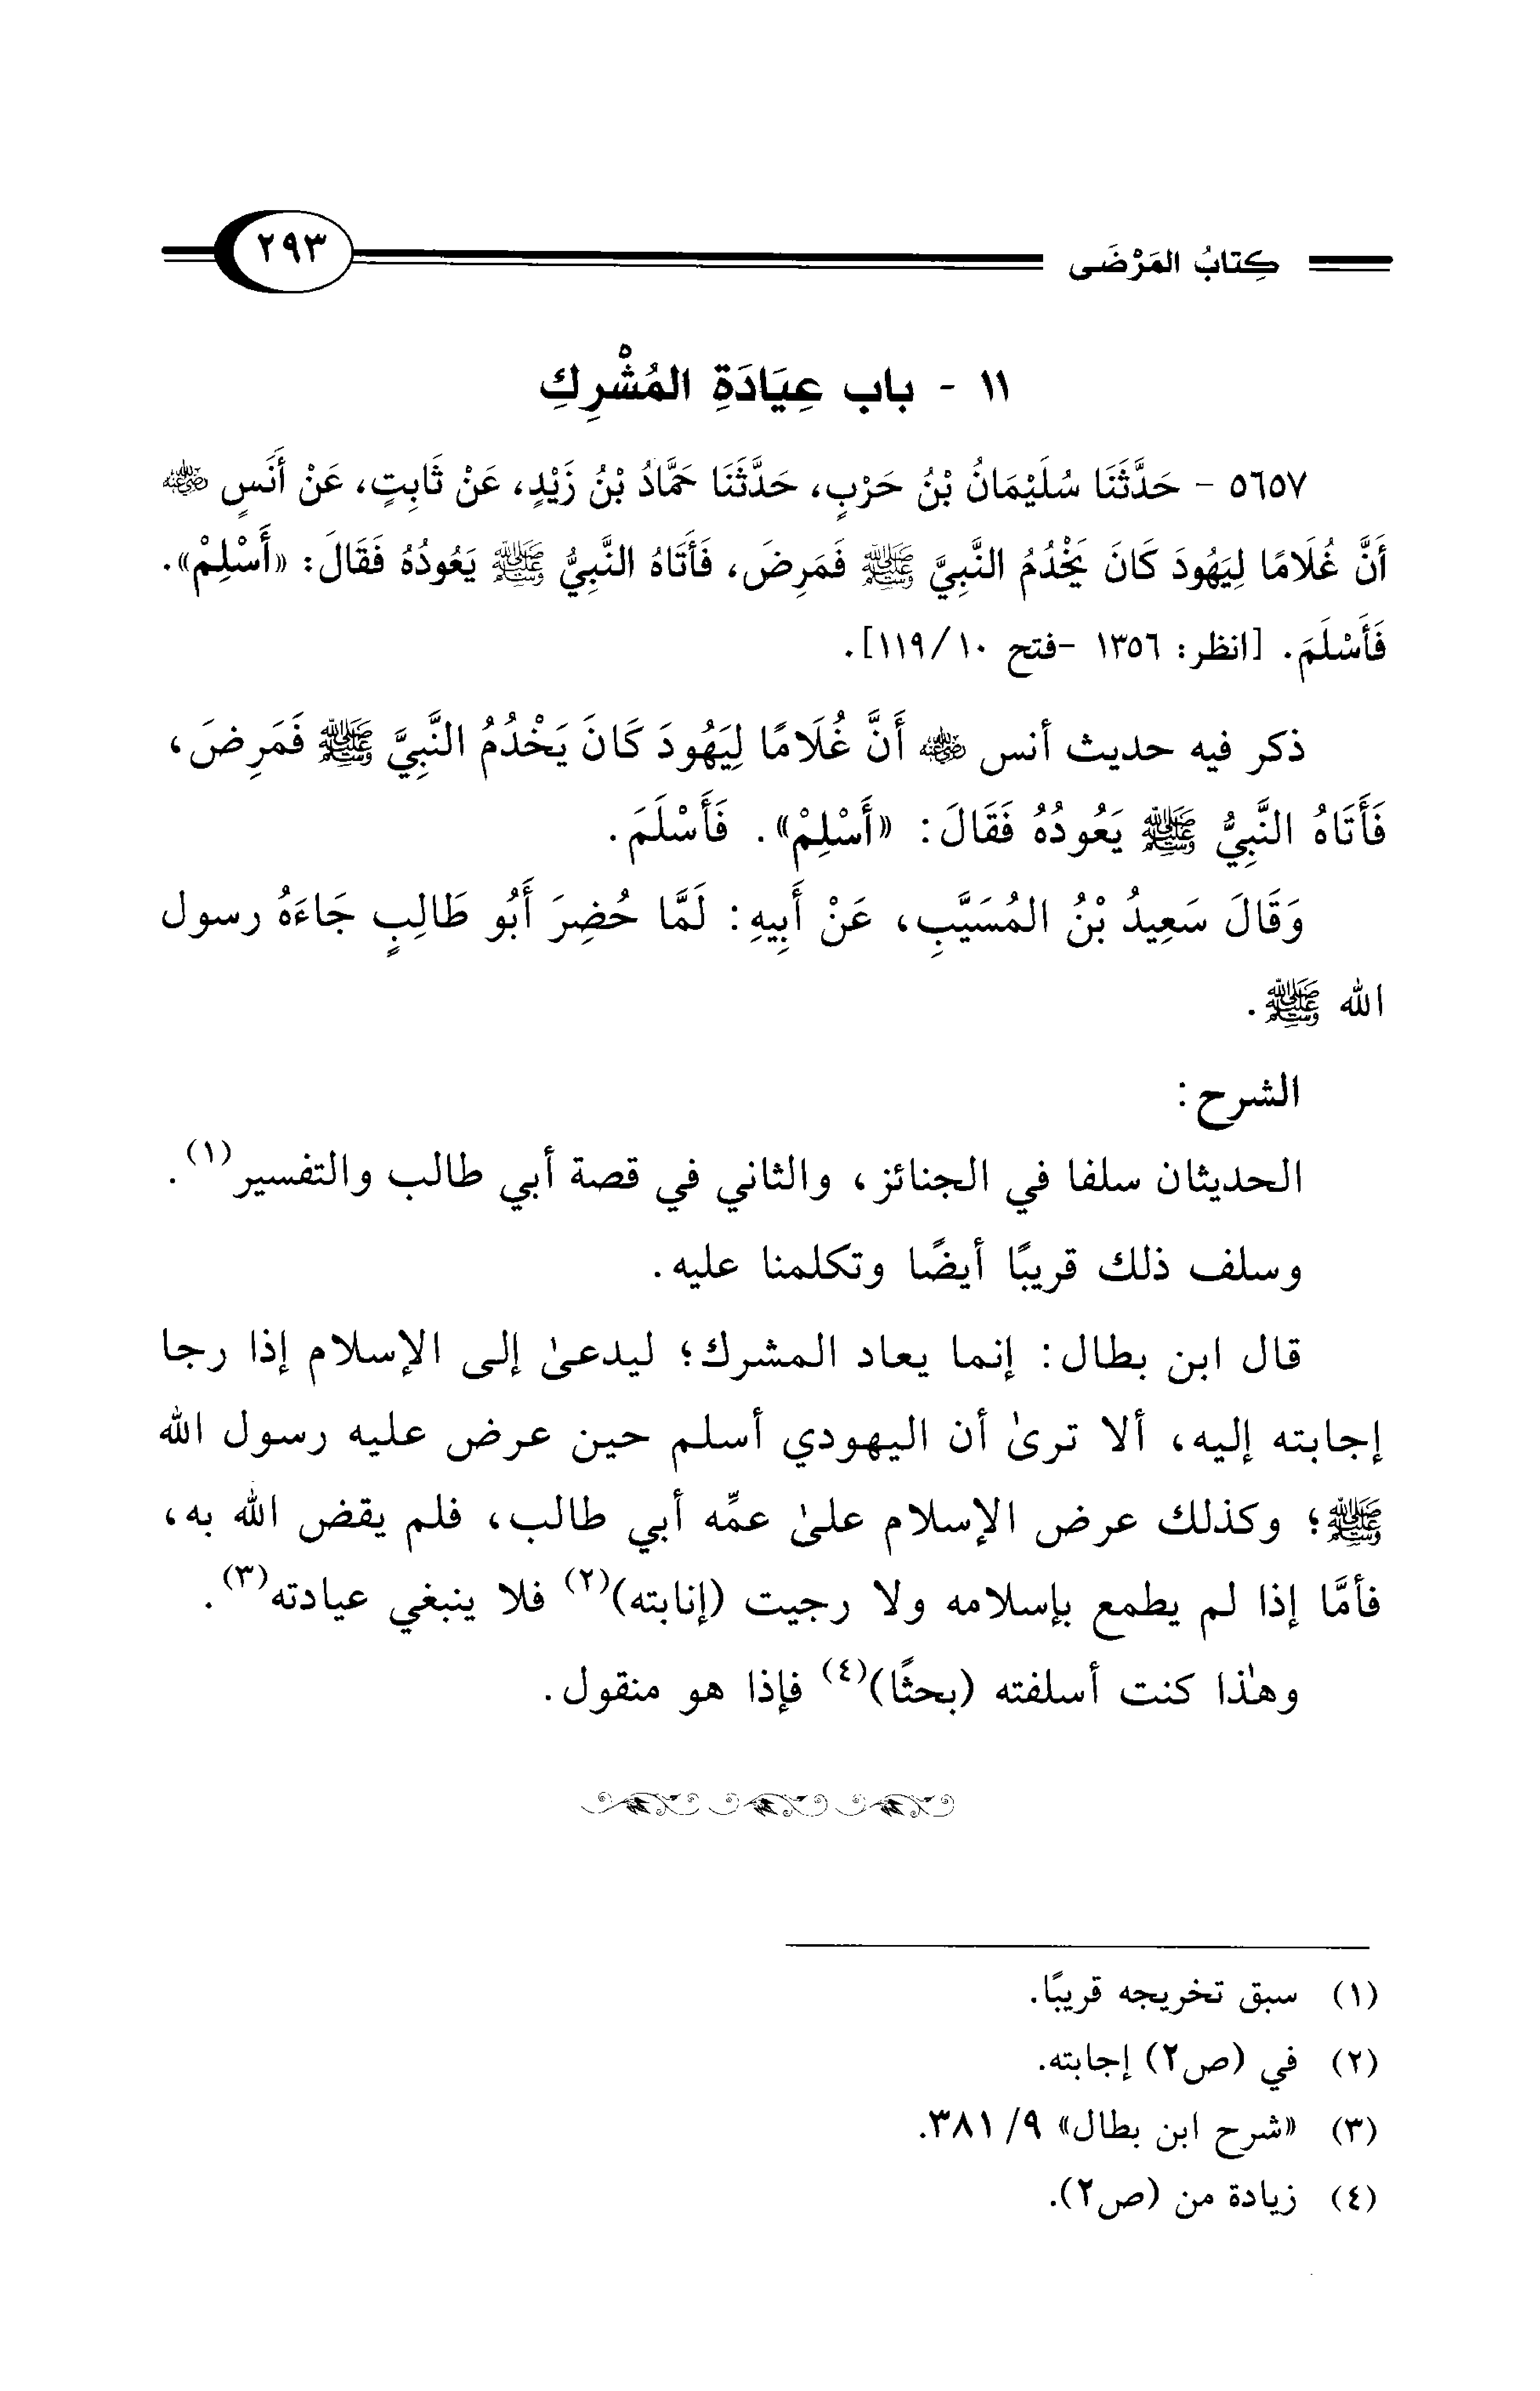 كِتابُ المَرْضَى
٢٩٣
١١ - باب عِيَادَةِ المُشْرِكِ
٥٦٥٧ - حَدَّثَنَا سُلَيْمَانُ بْنُ حَرْبٍ، حَدَّثَنَا حَمَّادُ بْنُ زَيْدٍ، عَنْ ثَابِتٍ، عَنْ أَنَسٍ رضي الله عنه
أَنَّ غُلَامًا لِيَهُودَ كَانَ يَخْدُمُ النَّبِيَّ ﷺ فَمَرِضَ، فَأَتَاهُ النَّبِيُّ ﷺ يَعُودُهُ فَقَالَ: «أَسْلِمْ».
فَأَسْلَمَ. [انظر: ١٣٥٦ -فتح ١٠/١١٩].
ذكر فيه حديث أنس رضي الله عنه أَنَّ غُلَامًا لِيَهُودَ كَانَ يَخْدُمُ النَّبِيَّ ﷺ فَمَرِضَ،
فَأَتَاهُ النَّبِيُّ ﷺ يَعُودُهُ فَقَالَ: «أَسْلِمْ». فَأَسْلَمَ.
وَقَالَ سَعِيدُ بْنُ المُسَيَّبِ، عَنْ أَبِيهِ: لَمَّا حُضِرَ أَبُو طَالِبٍ جَاءَهُ رسول
الله ﷺ.
الشرح:
الحديثان سلفا في الجنائز، والثاني في قصة أبي طالب والتفسير(١).
وسلف ذلك قريبًا أيضًا وتكلمنا عليه.
قال ابن بطال: إنما يعاد المشرك؛ ليدعىٰ إلى الإسلام إذا رجا
إجابته إليه، ألا ترىٰ أن اليهودي أسلم حين عرض عليه رسول الله
ﷺ؛ وكذلك عرض الإسلام علىٰ عمِّه أبي طالب، فلم يقض الله به،
فأمَّا إذا لم يطمع بإسلامه ولا رجيت (إنابته)(٢) فلا ينبغي عيادته(٣).
وهٰذا كنت أسلفته (بحثًا)(٤) فإذا هو منقول.
(١) سبق تخريجه قريبًا.
(٢) في (ص٢) إجابته.
(٣) «شرح ابن بطال» ٩/ ٣٨١.
(٤) زيادة من (ص٢).